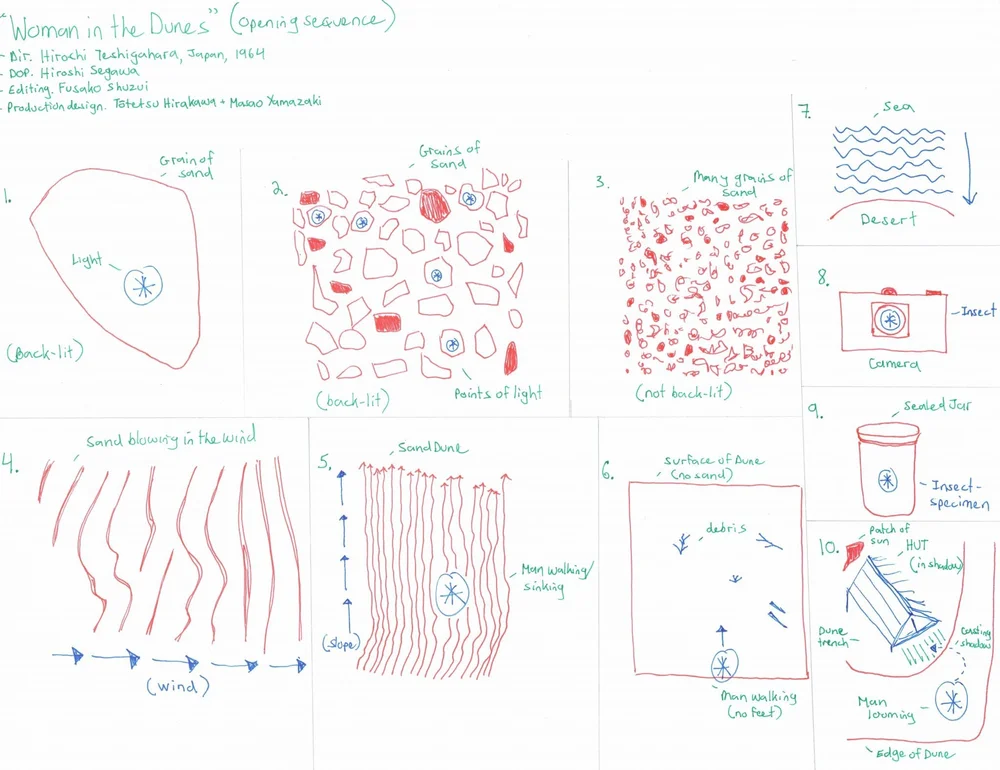 "Woman in the Dunes" (opening sequence)
- Dir. Hiroshi Teshigahara, Japan, 1964
- DOP. Hiroshi Segawa
- Editing. Fusako Shuzui
- Production design. Totetsu Hirakawa + Masao Yamazaki
1.
Grain of
sand
Light
(Back-lit)
2.
Grains of
sand
(back-lit)
Points of light
3.
Many grains of
sand
(not back-lit)
4.
Sand blowing in the wind
(wind)
5.
Sand Dune
(slope)
Man walking/
sinking
6.
surface of Dune
(no sand)
debris
Man walking
(no feet)
7.
Sea
Desert
8.
Insect
Camera
9.
Sealed Jar
Insect-
specimen
10.
Patch of
sun
HUT
(in shadow)
Dune
trench
Casting
shadow
Man
looming
Edge of Dune